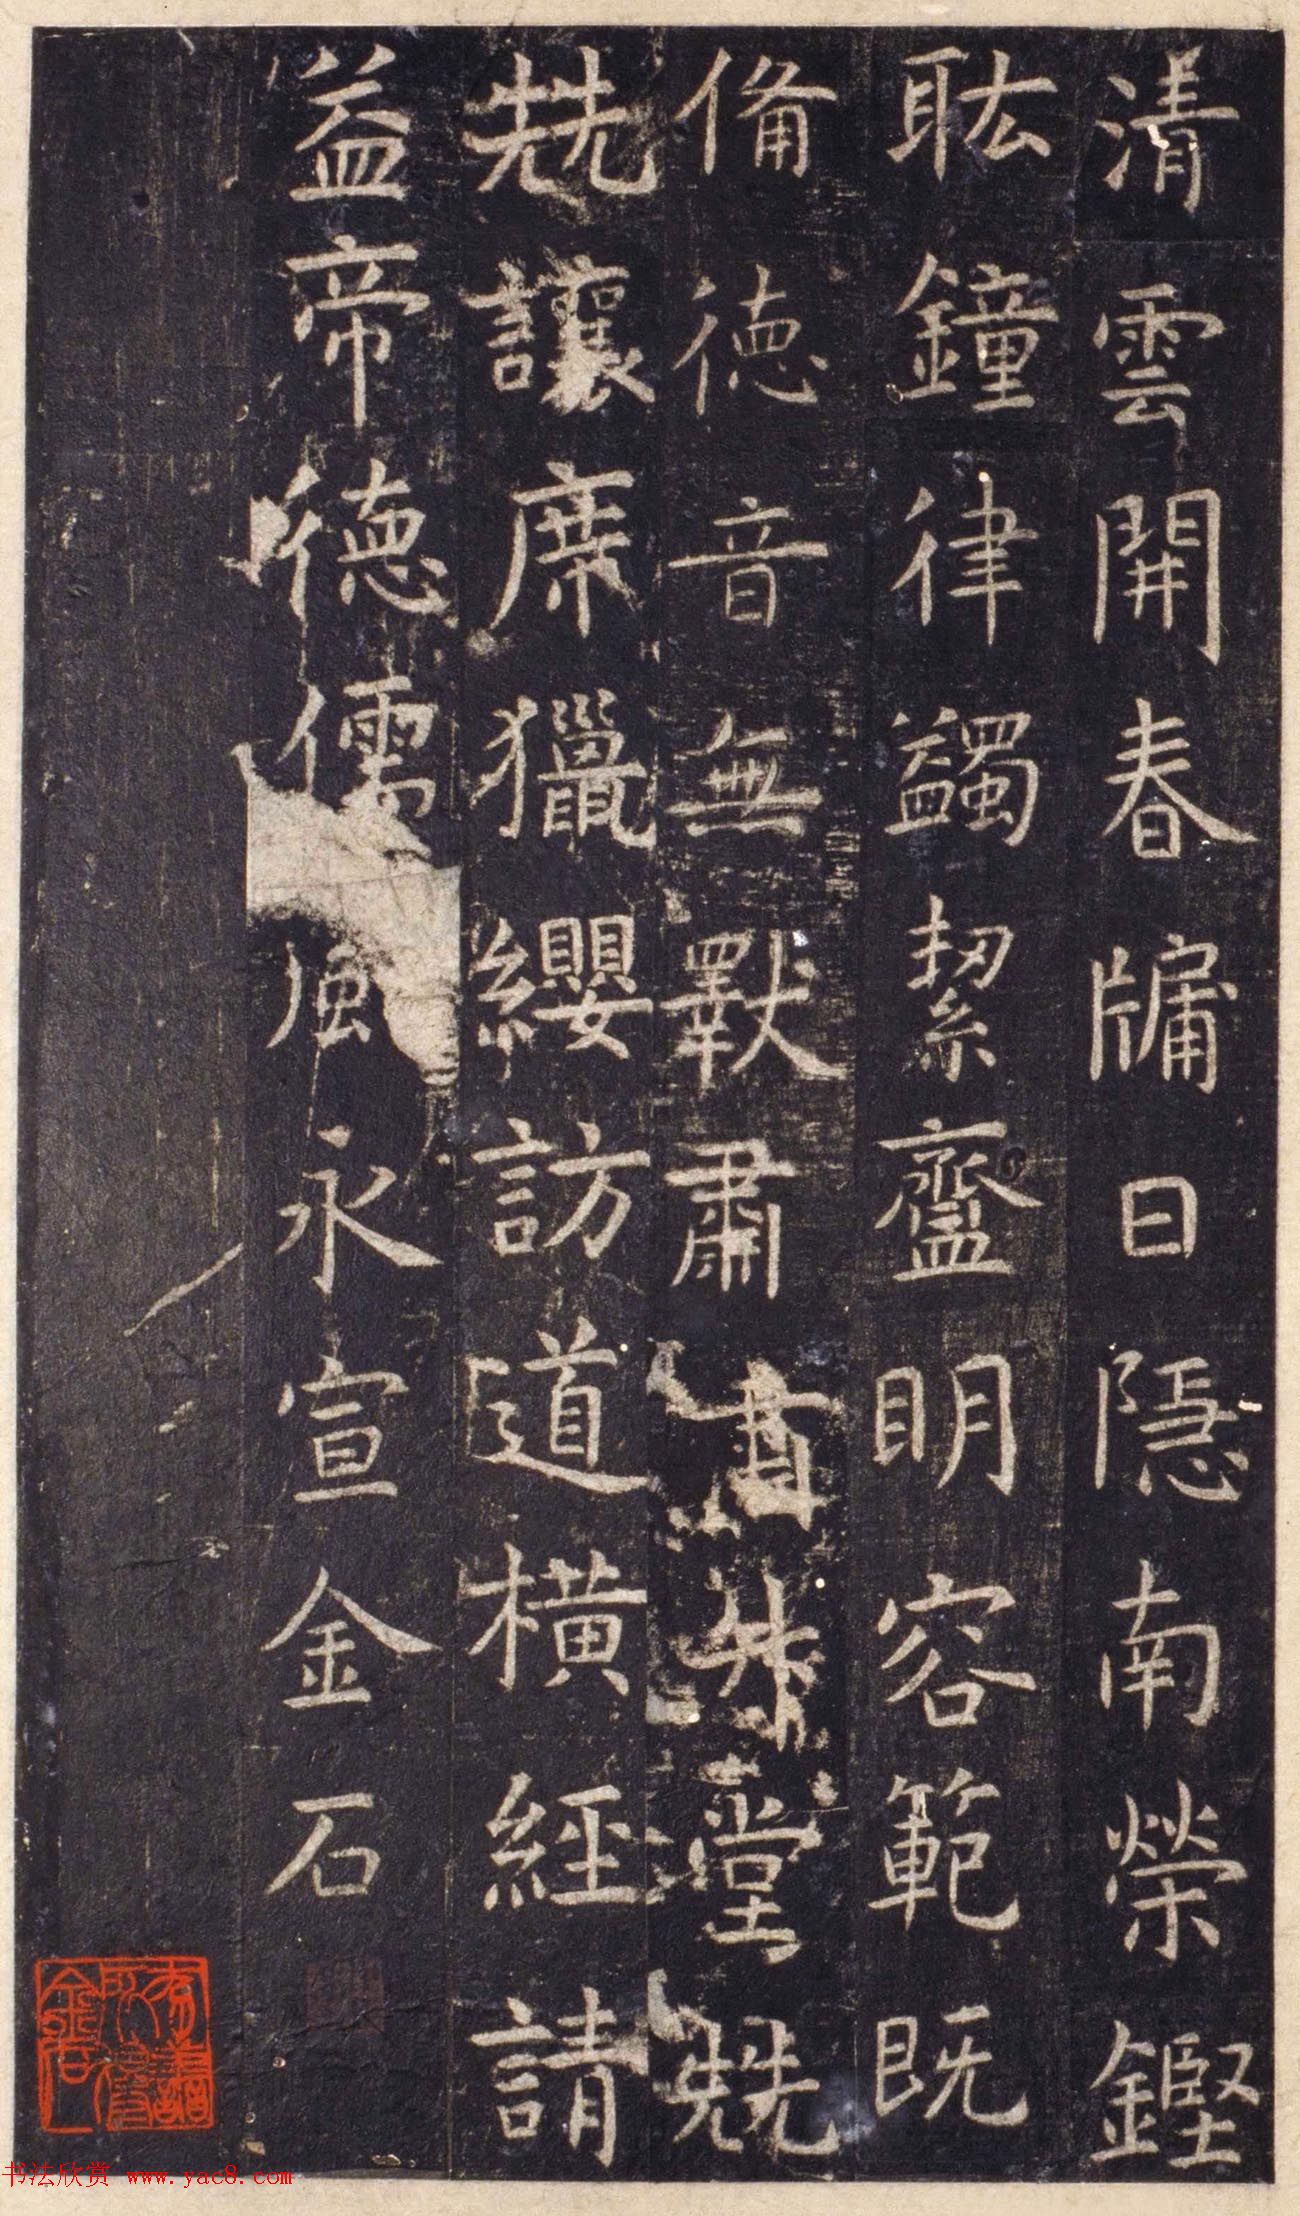 清雲開春牖日隱南榮鏗
耾鐘律蠲絜齍明容範既
備德音無斁肅肅升堂兟
兟讓席獵纓訪道橫經請
益帝德儒風永宣金石
书法欣赏 www.yac8.com